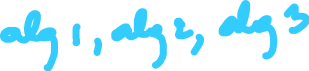 alg 1, alg 2, alg 3